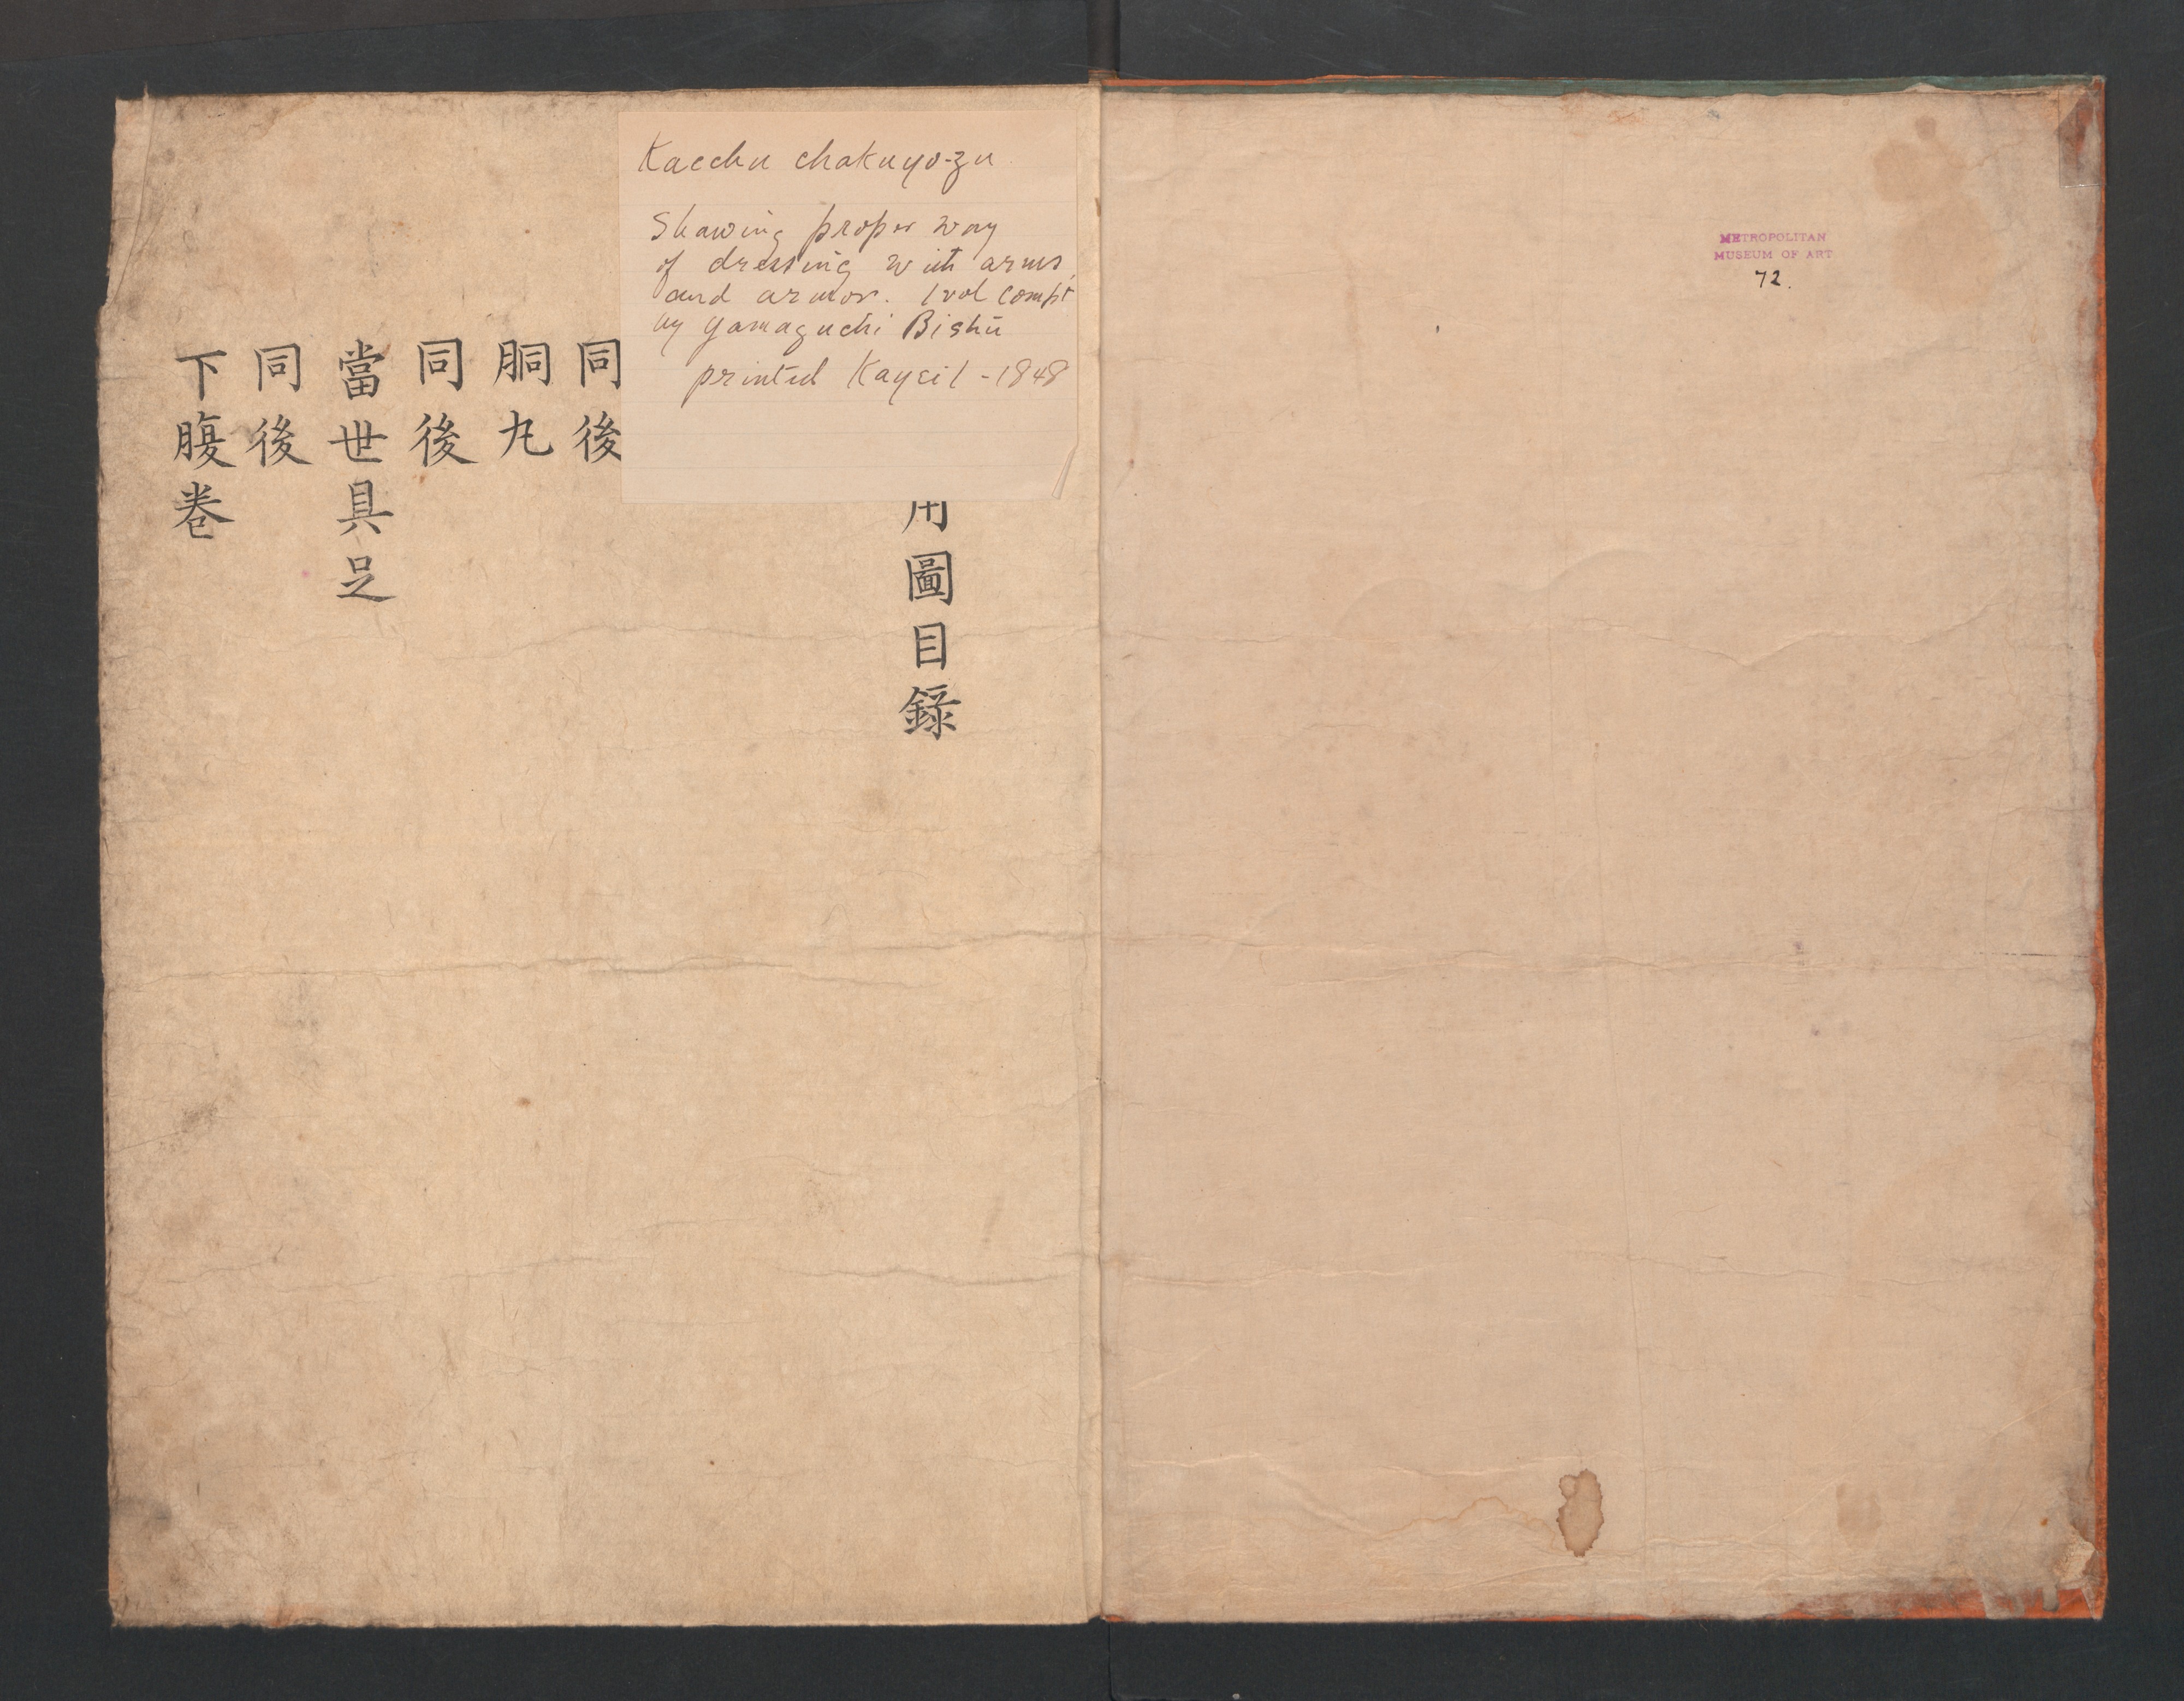 METROPOLITAN
MUSEUM OF ART
72.
Kacchu chakuyo-zu
Showing proper way
of dressing with arms
and armor. 1 vol compt
by Yamaguchi Bishū
printed Kayei 1 - 1848
用圖目録
同後
胴丸
同後
當世具足
同後
下腹巻